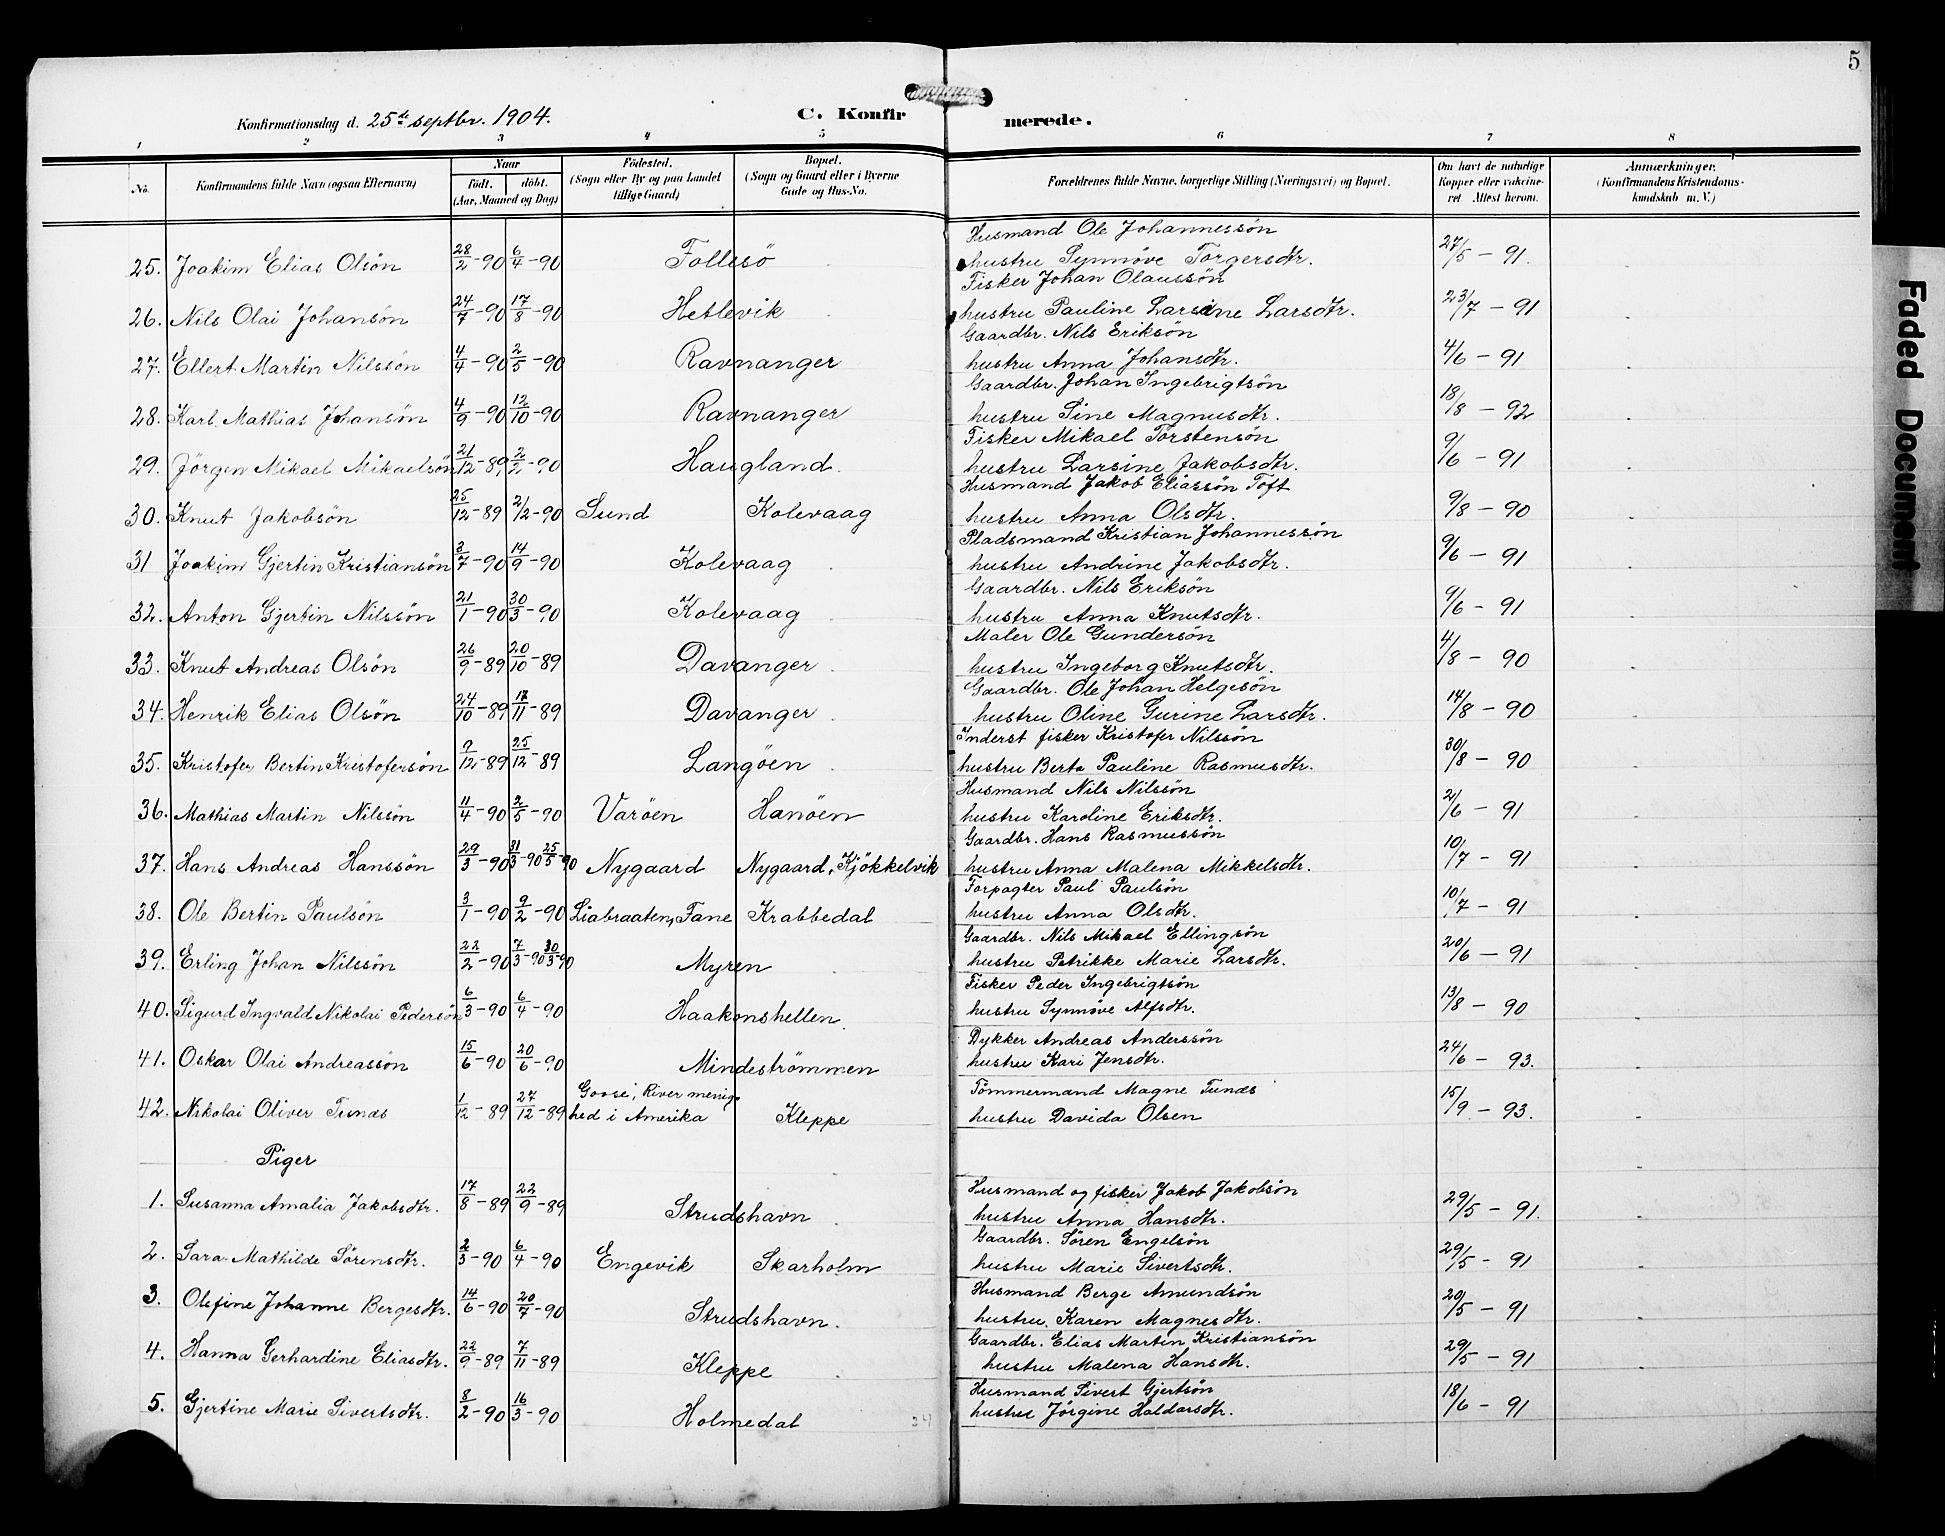 5
Konfirmationsdag d. 25de septbr. 1904.
C. Konfirmerede.
1 2 3 4 5 6 7 8
No.
Konfirmandens fulde Navn (ogsaa Efternavn)
Naar
født. døbt.
(Aar, Maaned og Dag)
Fødested.
(Sogn eller By og paa Landet
tillige Gaard)
Bopæl.
(Sogn og Gaard eller i Byerne
Gade og Hus-No.
Forældrenes fulde Navne, borgerlige Stilling (Næringsvei) og Bopæl.
Om havt de naturlige
Kopper eller vakcine-
ret. Attest herom.
Anmærkninger.
(Konfirmandens Kristendoms-
kundskab m. V.)
Husmand Ole Johannessön
25. Joakim Elias Olsön 28/2-90 6/4-90 Follesö hustru Synnöve Torgersdtr. 27/5-91.
Fisker Johan Olaussön
26. Nils Olai Johansön 24/7-90 17/8-90 Hetlevik hustru Pauline Larsine Larsdtr. 23/7-91
Gaardbr. Nils Eriksön
27. Ellert Martin Nilssön 4/4-90 2/5-90 Ravnanger hustru Anna Johansdtr. 4/6-91
Gaardbr. Johan Ingebrigtsön
28. Karl Mathias Johansön 4/9-90 12/10-90 Ravnanger hustru Sine Magnusdtr. 18/8-92
Fisker Mikael Torstensön
29. Jörgen Mikael Mikaelsön 21/12-89 2/2-90 Haugland. hustru Larsine Jakobsdtr. 9/6-91
Husmand Jakob Eliassön Toft
30. Knut Jakobsön 25/12-89 2/2-90 Sund Kolevaag hustru Anna Olsdtr. 9/8-90
Pladsmand Kristian Johannessön
31 Joakim Gjertin Kristiansön 3/7-90 14/9-90 Kolevaag hustru Andrine Jakobsdtr. 9/6-91
Gaardbr. Nils Eriksön
32. Anton Gjertin Nilssön 21/1-90 30/3-90 Kolevaag hustru Anna Knutsdtr. 9/6-91
Maler Ole Gundersön
33. Knut Andreas Olsön 26/9-89 20/10-89 Davanger hustru Ingeborg Knutsdtr. 4/8-90
Gaardbr. Ole Johan Helgesön
34. Henrik Elias Olsön 24/10-89 17/11-89 Davanger hustru Oline Gurine Larsdtr. 14/8-90
Inderst fisker Kristofer Nilssön
35. Kristofer Bertin Kristofersön 9/12-89 25/12-89 Langöen hustru Berta Pauline Rasmusdtr. 30/8-90
Husmand Nils Nilssön
36. Mathias Martin Nilssön 11/4-90 2/5-90 Varöen Hanöen hustru Karoline Eriksdtr. 2/6-91
Gaardbr. Hans Rasmussön
37. Hans Andreas Hanssön 29/3-90 31/3-90 25/5-90 Nygaard Nygaard, Kjökkelvik hustru Anna Malena Mikkelsdtr. 10/7-91
Forpagter Paul Paulsön
38. Ole Bertin Paulsön 3/1-90 9/2-90 Liabraaten, Fane Krabbedal hustru Anna Olsdtr. 10/7-91
Gaardbr. Nils Mikael Ellingsön
39. Erling Johan Nilssön 22/2-90 7/3-90 30/3-90 Myren hustru Petrikke Marie Larsdtr. 20/6-91
Fisker Peder Ingebrigtsön
40. Sigurd Ingvald Nikolai Pedersön 6/3-90 6/4-90 Haakonshellen. hustru Synnöve Alfsdtr. 13/8-90
Dykker Andreas Anderssön
41. Oskar Olai Andreassön 15/6-90 20/6-90 Mindeströmmen hustru Kari Jensdtr. 24/6-93.
Goose, River menig- Tömmermand Magne Tunæs
42. Nikolai Oliver Tunæs 1/12-89 27/12-89 hed i Amerika Kleppe hustru Davida Olsen 15/9-93.
Piger
Husmand og fisker Jakob Jakobsön
1. Susanna Amalia Jakobsdtr. 17/8-89 22/9-89 Strudshavn hustru Anna Hansdtr. 29/5-91.
Gaardbr. Sören Engelsön
2. Sara Mathilde Sörensdtr. 2/3-90 6/4-90 Engevik Skarholm hustru Marie Sivertsdtr. 29/5-91
Husmand Berge Amundsön
3. Olefine Johanne Bergesdtr. 14/6-90 20/7-90 Strudshavn. hustru Karen Magnesdtr. 20/5-91
Gaardbr. Elias Martin Kristiansön
4. Hanna Gerhardine Eliasdtr. 22/9-89 7/11-89 Kleppe hustru Malena Hansdtr. 29/5-91
Husmand Sivert Gjertsön
5. Gjertine Marie Sivertsdtr. 8/2-90 16/3-90 Holmedal hustru Jörgine Haldorsdtr. 18/6-91
Faded Document